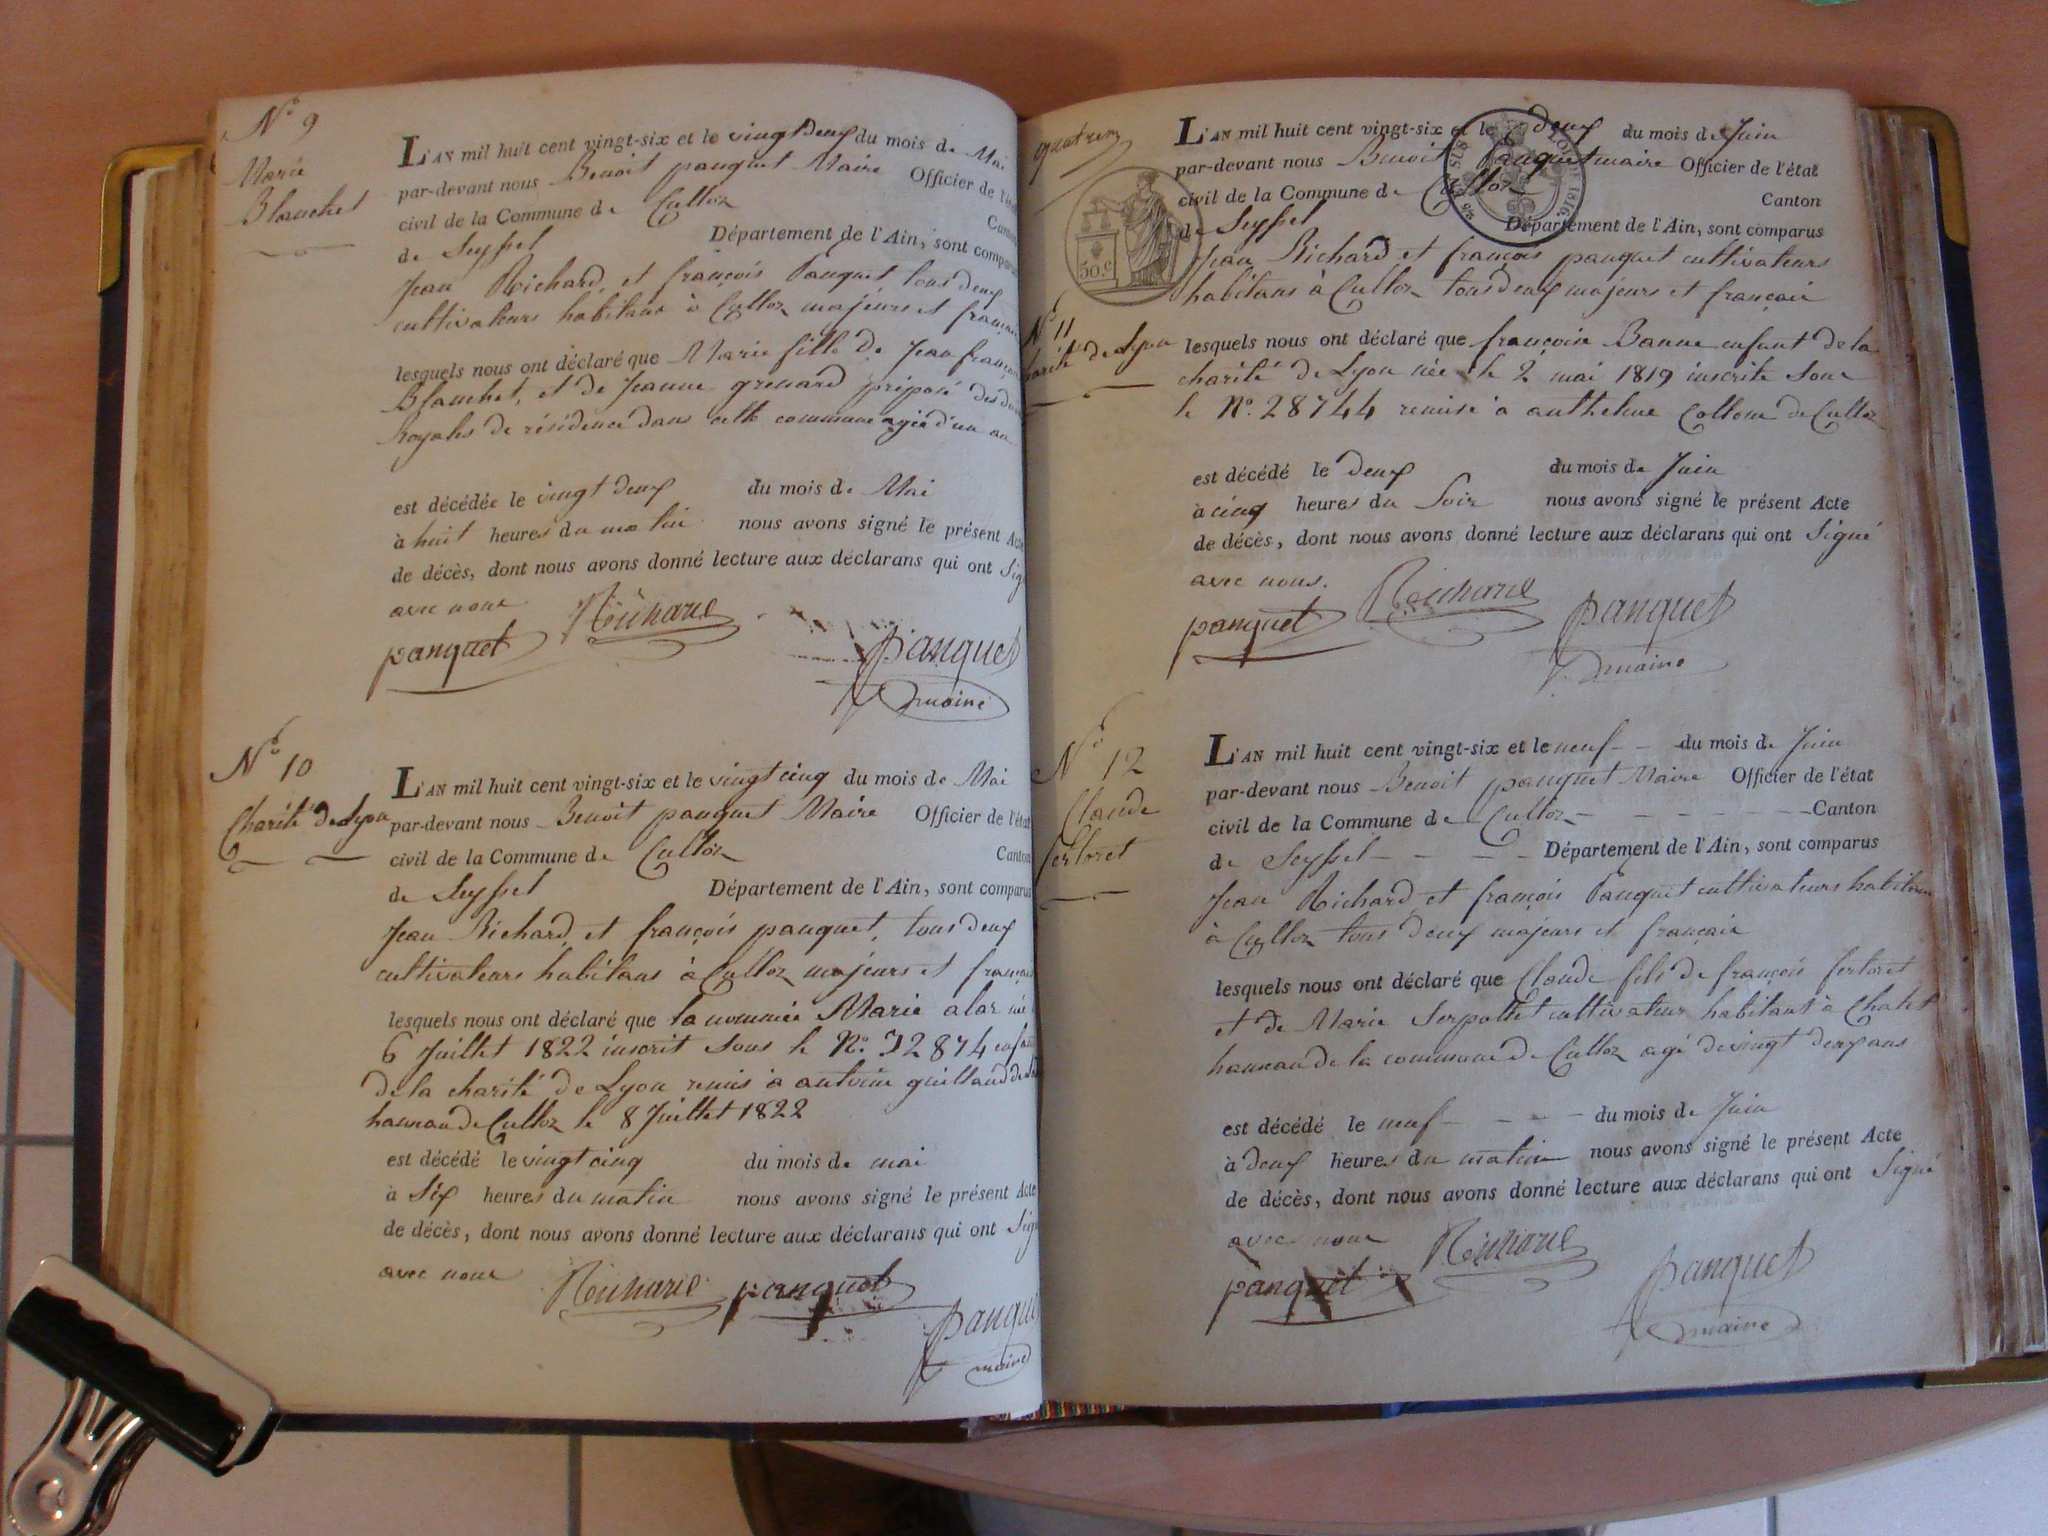 N° 9
Marie
Blanchet
L'AN mil huit cent vingt-six et le vingt deux du mois de Mai
par-devant nous Benoit panquet Maire Officier de l'état
civil de la Commune de Culloz Canton
de Seyssel Département de l'Ain, sont comparus
Jean Richard, et françois Panquet, tous deux
cultivateurs habitans à Culloz majeurs et français
lesquels nous ont déclaré que Marie fille de Jean françois
Blanchet, et de Jeanne grenard préposé des
Royales de résidence dans cette commune agée d'un an
est décédée le vingt deux du mois de Mai
à huit heures du matin nous avons signé le présent Acte
de décès, dont nous avons donné lecture aux déclarans qui ont Signé
avec nous
panquet Richard panquet
maire
N° 10
Charité de Lyon
L'AN mil huit cent vingt-six et le vingt cinq du mois de Mai
par-devant nous Benoit panquet Maire Officier de l'état
civil de la Commune de Culloz Canton
de Seyssel Département de l'Ain, sont comparus
Jean Richard, et françois panquet, tous deux
cultivateurs habitans à Culloz majeurs et français
lesquels nous ont déclaré que la nommée Marie alar née
6 Juillet 1822 inscrit sous le N° 32874 enfant
de la charité de Lyon remis à antoine guilland de
hameau de Culloz le 8 Juillet 1822
est décédé le vingt cinq du mois de mai
à Six heures du matin nous avons signé le présent Acte
de décès, dont nous avons donné lecture aux déclarans qui ont Signé
avec nous
Richard panquet
panquet
maire
L'AN mil huit cent vingt-six et le deux du mois de Juin
par-devant nous Benoit Panquet maire Officier de l'état
civil de la Commune de Culloz Canton
de Seyssel Département de l'Ain, sont comparus
50.c
LOI DE 1816.
Jean Richard et françois panquet cultivateurs
habitans à Culloz tous deux majeurs et français
N° 11
charité de Lyon
lesquels nous ont déclaré que françoise Banne enfant de la
charité de Lyon née le 2 mai 1819 inscrite sous
le N° 28744 remise à anthelme Collomb de Culloz
est décédé le deux du mois de Juin
à cinq heures du Soir nous avons signé le présent Acte
de décès, dont nous avons donné lecture aux déclarans qui ont Signé
avec nous.
panquet Richard panquet
maire
N° 12
Claude
fertoret
L'AN mil huit cent vingt-six et le neuf du mois de Juin
par-devant nous Benoit panquet Maire Officier de l'état
civil de la Commune de Culloz Canton
de Seyssel Département de l'Ain, sont comparus
Jean Richard, et françois Panquet cultivateurs habitans
à Culloz tous deux majeurs et français
lesquels nous ont déclaré que Claude fils de françois fertoret
et de Marie Serpollet cultivateur habitant à Chatel
hameau de la commune de Culloz agé de vingt deux ans
est décédé le neuf du mois de Juin
à deux heures du matin nous avons signé le présent Acte
de décès, dont nous avons donné lecture aux déclarans qui ont Signé
avec nous
panquet Richard panquet
maire